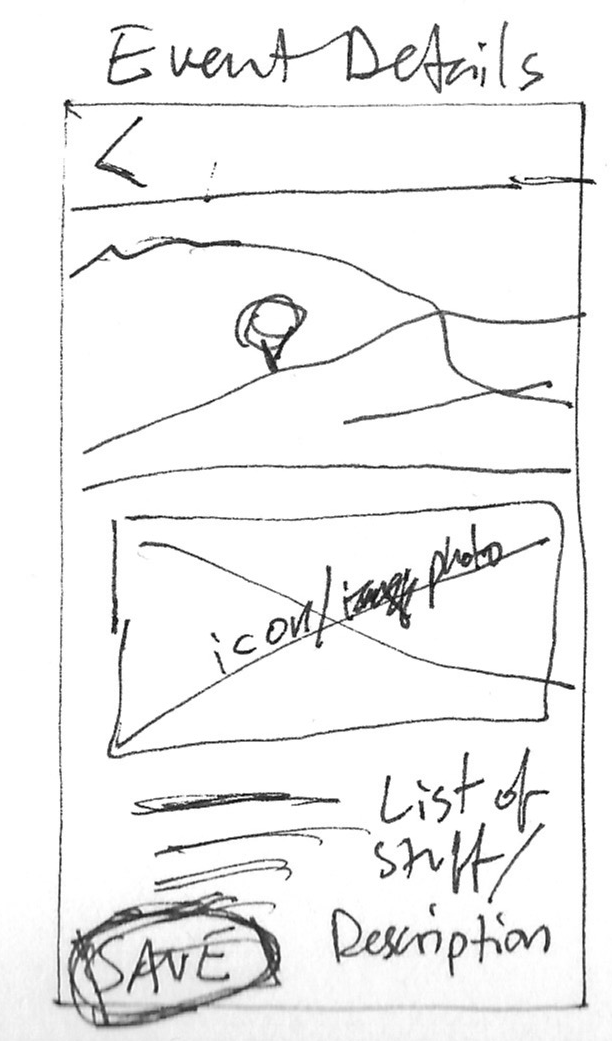 Event Details
icon/ photo
List of
stuff/
Description
SAVE